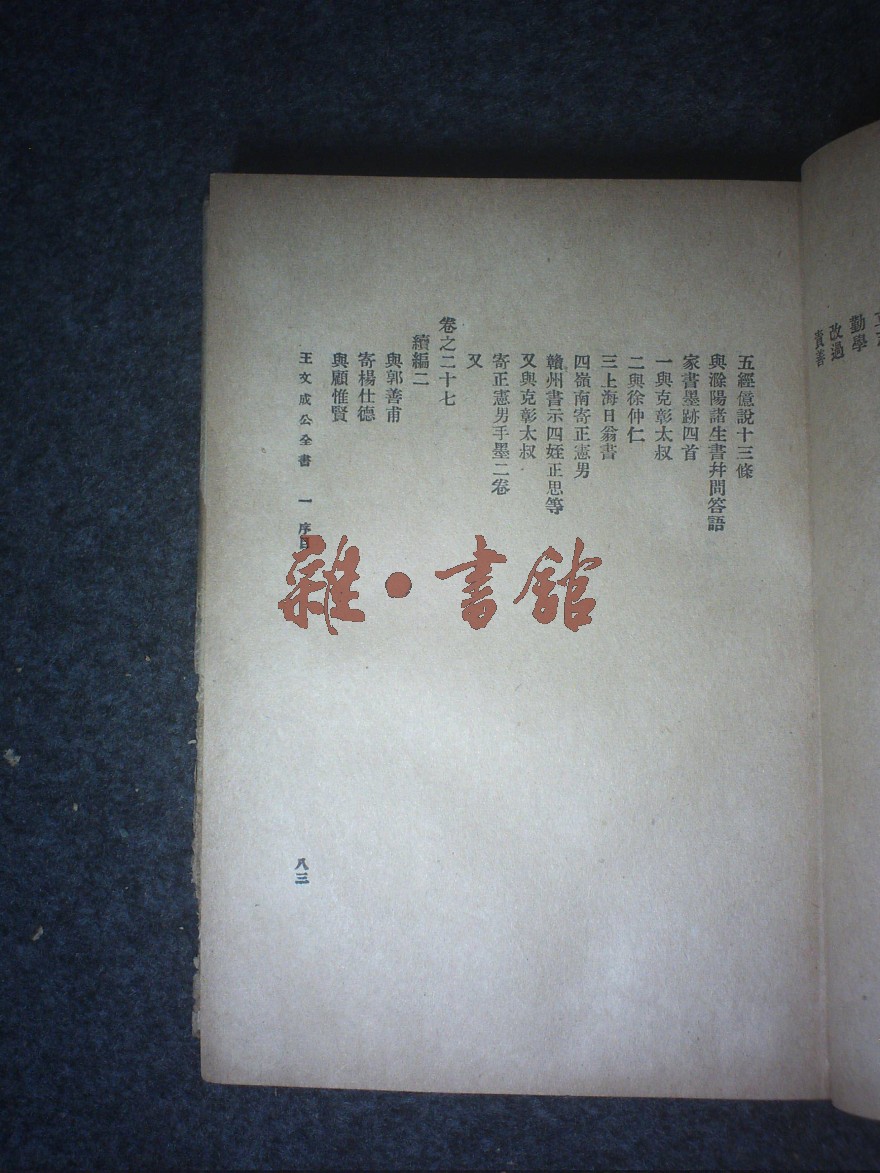 勤學
改過
責善
五經億說十三條
與滁陽諸生書幷問答語
家書墨跡四首
一與克彰太叔
二與徐仲仁
三上海日翁書
四嶺南寄正憲男
贛州書示四姪正思等
又與克彰太叔
寄正憲男手墨二卷
又
卷之二十七
續編二
與郭善甫
寄楊仕德
與顧惟賢
王文成公全書 一 序目
八三
雜·書館